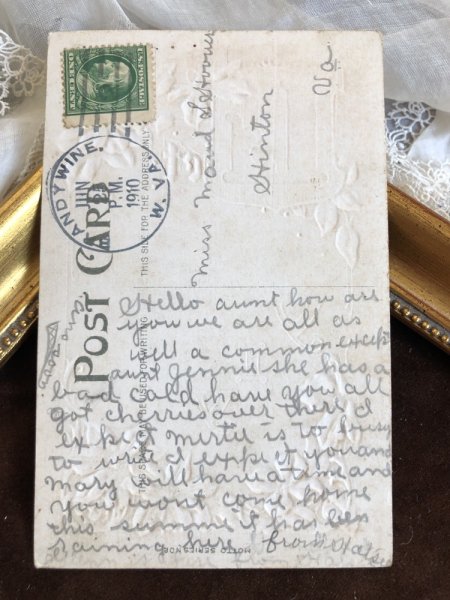 U.S. POSTAGE
ONE CENT
ANDYWINE.
JUN
P.M.
1910
W. VA.
POST CARD
THIS SIDE FOR THE ADDRESS ONLY
THIS SPACE MAY BE USED FOR WRITING
Miss Maud
Hinton
Va
Hello aunt how are
you we are all as
well a common except
aunt Jennie she has a
bad cold have you all
got cherries over there I
expect mirtie is to busy
to write I expect you and
mary will have a time and
you wont come home
this summer it has been
raining here from
MOTTO SERIES NO